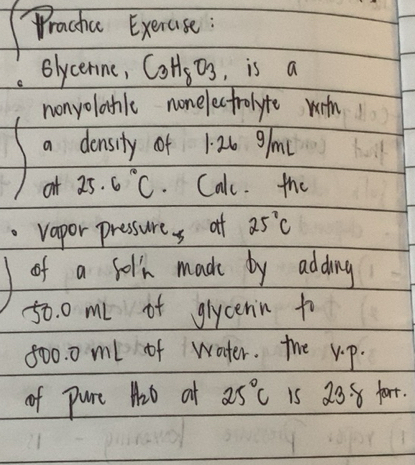 Practice Exercise:
Glycerine, C3H8O3, is a
nonvolatile nonelectrolyte with
a density of 1.26 g/mL
at 25.0°C. Calc. the
vapor pressure, at 25°C
of a sol'n made by adding
50.0 mL of glycerin to
500.0 mL of water. The v.p.
of pure H2O at 25°C is 23.8 torr.